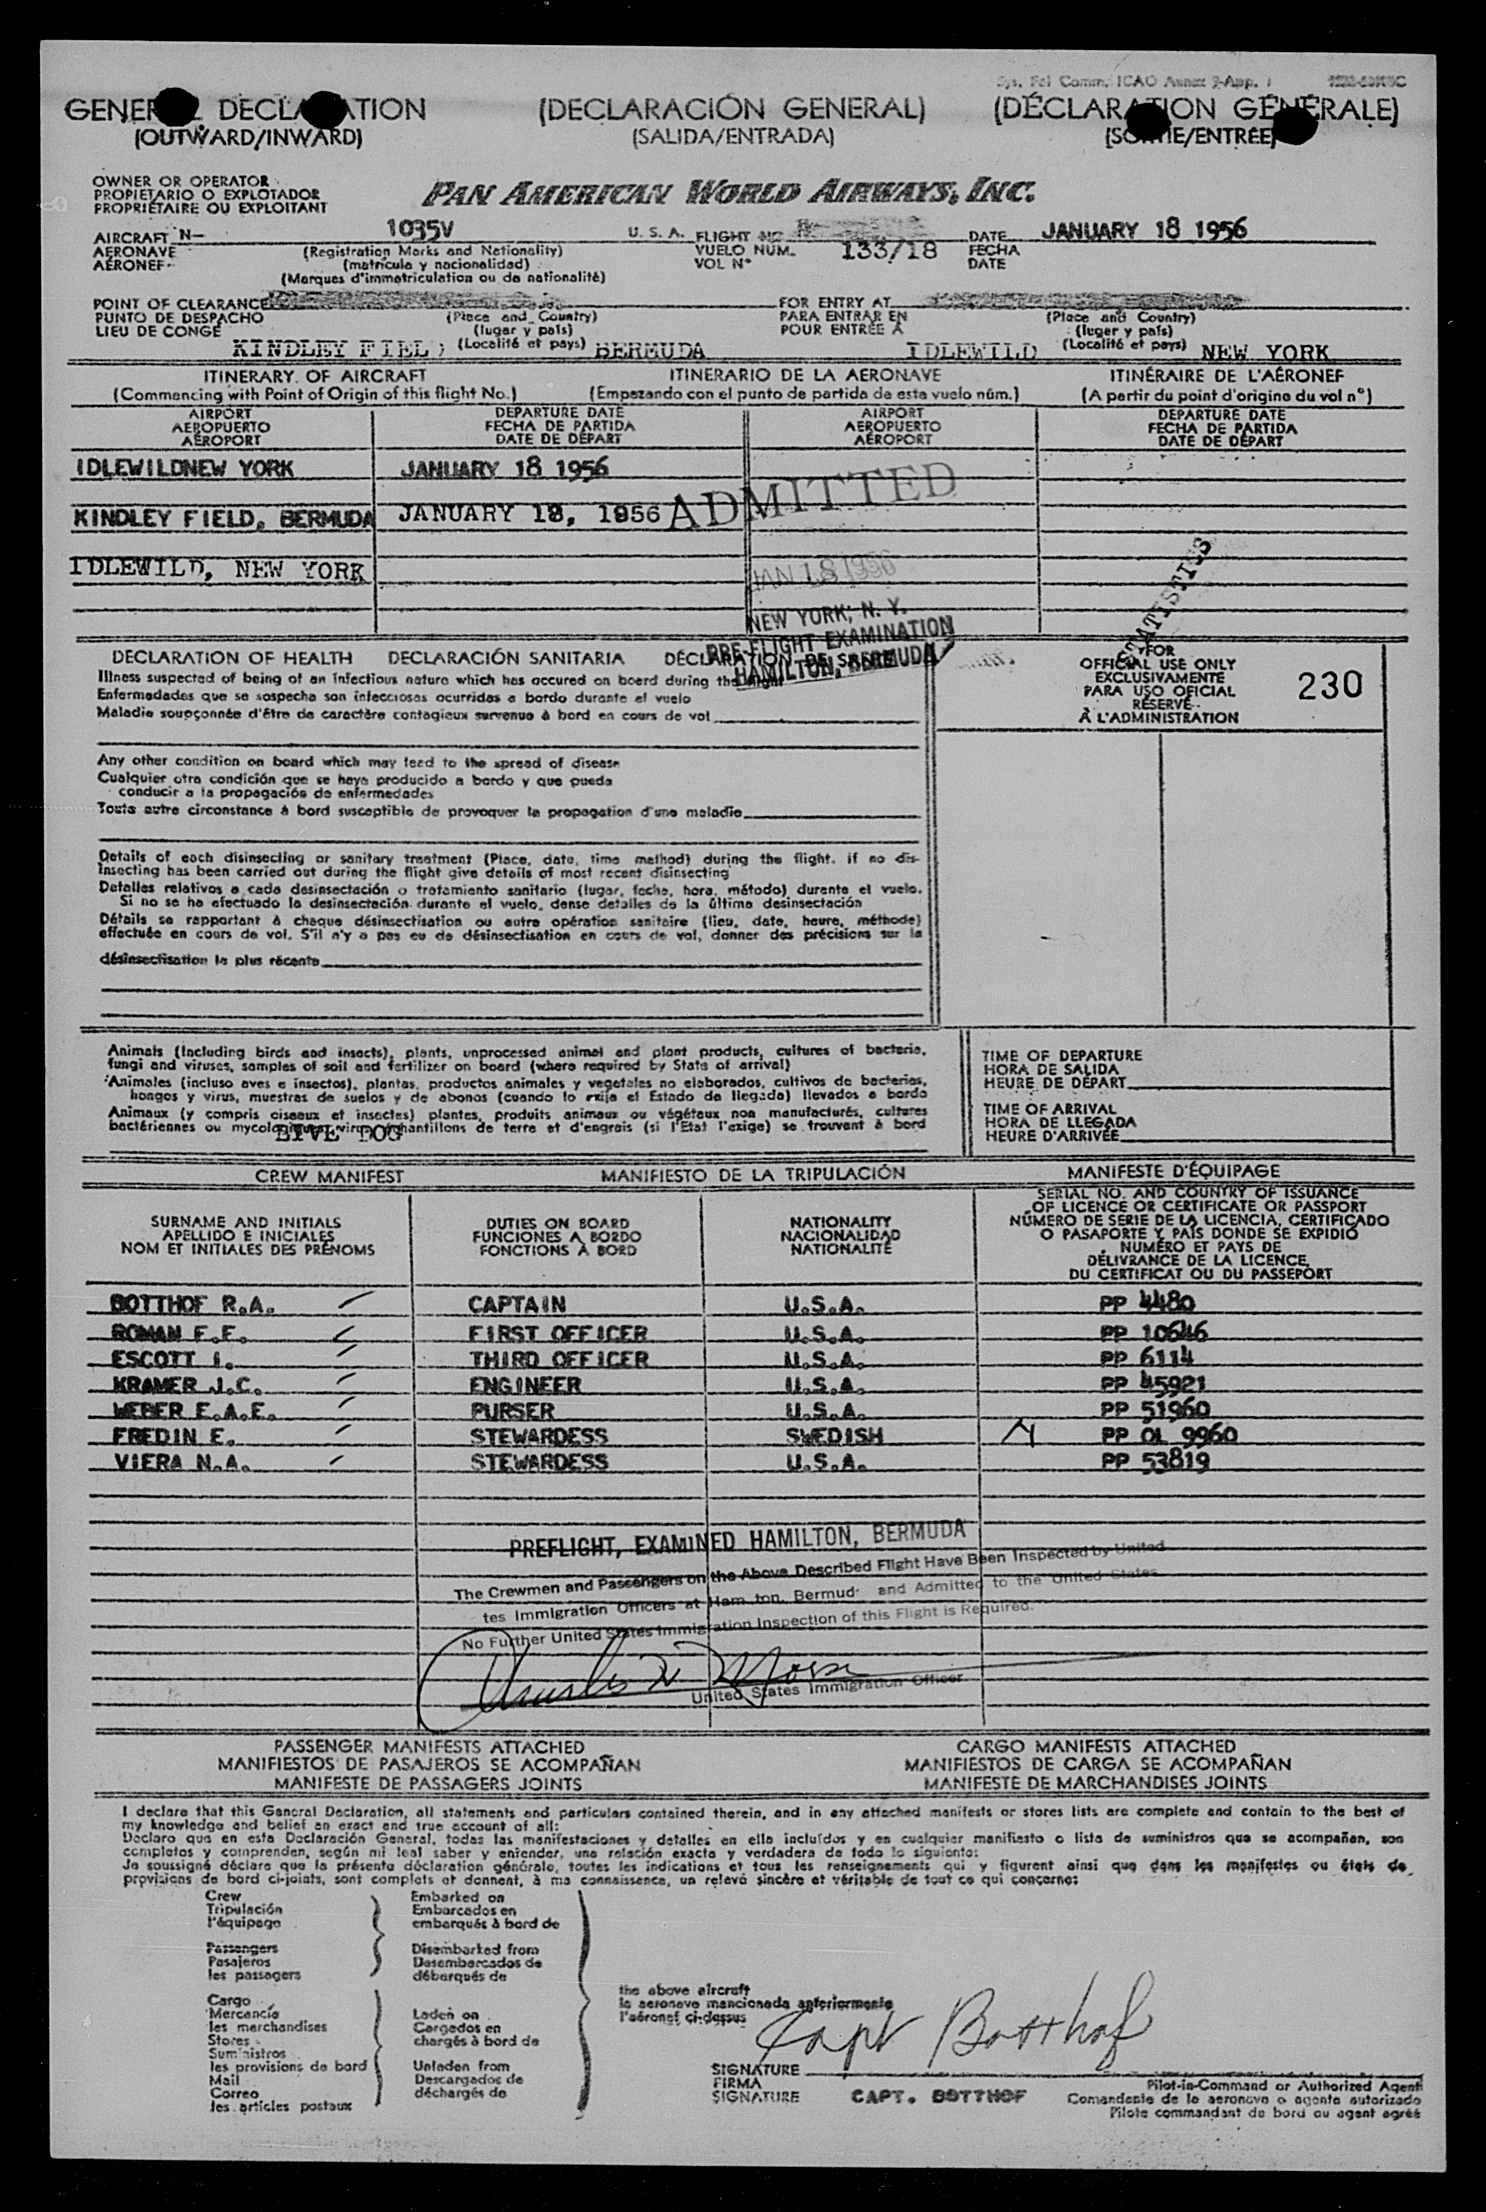 Sys. Fal Comm. ICAO Annex 9-App. 1
GENERAL DECLARATION (DECLARACIÓN GENERAL) (DÉCLARATION GÉNÉRALE)
(OUTWARD/INWARD) (SALIDA/ENTRADA) (SORTIE/ENTRÉE)
OWNER OR OPERATOR
PROPIETARIO O EXPLOTADOR PAN AMERICAN WORLD AIRWAYS, INC.
PROPRIÉTAIRE OU EXPLOITANT
AIRCRAFT N- 1035V U. S. A. FLIGHT NO DATE JANUARY 18 1956
AERONAVE (Registration Marks and Nationality) VUELO NUM. 133/18 FECHA
AÉRONEF (matrícula y nacionalidad) VOL N° DATE
(Marques d'immatriculation ou de nationalité)
POINT OF CLEARANCE FOR ENTRY AT
PUNTO DE DESPACHO (Place and Country) PARA ENTRAR EN (Place and Country)
LIEU DE CONGÉ (lugar y país) POUR ENTRÉE À (lugar y país)
KINDLEY FIELD (Localité et pays) BERMUDA IDLEWILD (Localité et pays) NEW YORK
ITINERARY OF AIRCRAFT ITINERARIO DE LA AERONAVE ITINÉRAIRE DE L'AÉRONEF
(Commencing with Point of Origin of this flight No.) (Empezando con el punto de partida de este vuelo núm.) (A partir du point d'origine du vol n°)
AIRPORT DEPARTURE DATE AIRPORT DEPARTURE DATE
AEROPUERTO FECHA DE PARTIDA AEROPUERTO FECHA DE PARTIDA
AÉROPORT DATE DE DÉPART AÉROPORT DATE DE DÉPART
IDLEWILDNEW YORK JANUARY 18 1956
KINDLEY FIELD, BERMUDA JANUARY 18, 1956 ADMITTED
IDLEWILD, NEW YORK JAN 18 1956
STATISTICS
NEW YORK, N. Y.
PRE-FLIGHT EXAMINATION
HAMILTON, BERMUDA
DECLARATION OF HEALTH DECLARACIÓN SANITARIA DÉCLARATION DE SANTÉ
FOR
OFFICIAL USE ONLY
EXCLUSIVAMENTE
PARA USO OFICIAL 230
RÉSERVÉ
À L'ADMINISTRATION
Illness suspected of being of an infectious nature which has occured on board during the flight
Enfermedades que se sospecha son infecciosas ocurridas a bordo durante el vuelo
Maladie soupçonnée d'être de caractère contagieux survenue à bord en cours de vol
Any other condition on board which may lead to the spread of disease
Cualquier otra condición que se haya producido a bordo y que pueda
conducir a la propagación de enfermedades
Toute autre circonstance à bord susceptible de provoquer la propagation d'une maladie
Details of each disinsecting or sanitary treatment (Place, date, time method) during the flight. If no dis-
insecting has been carried out during the flight give details of most recent disinsecting
Detalles relativos a cada desinsectación o tratamiento sanitario (lugar, fecha, hora, método) durante el vuelo.
Si no se ha efectuado la desinsectación durante el vuelo, dense detalles de la última desinsectación
Détails se rapportant à chaque désinsectisation ou autre opération sanitaire (lieu, date, heure, méthode)
effectuée en cours de vol. S'il n'y a pas eu de désinsectisation en cours de vol, donner des précisions sur la
désinsectisation la plus récente
Animals (Including birds and insects), plants, unprocessed animal and plant products, cultures of bacteria,
fungi and viruses, samples of soil and fertilizer on board (where required by State of arrival)
Animales (incluso aves e insectos), plantas, productos animales y vegetales no elaborados, cultivos de bacterias,
hongos y virus, muestras de suelos y de abonos (cuando lo exija el Estado de llegada) llevados a bordo
Animaux (y compris oiseaux et insectes) plantes, produits animaux ou végétaux non manufacturés, cultures
bactériennes ou mycologiques, virus, échantillons de terre et d'engrais (si l'Etat l'exige) se trouvant à bord
LIVE DOG
TIME OF DEPARTURE
HORA DE SALIDA
HEURE DE DÉPART
TIME OF ARRIVAL
HORA DE LLEGADA
HEURE D'ARRIVÉE
CREW MANIFEST MANIFIESTO DE LA TRIPULACIÓN MANIFESTE D'ÉQUIPAGE
SURNAME AND INITIALS
APELLIDO E INICIALES
NOM ET INITIALES DES PRÉNOMS
DUTIES ON BOARD
FUNCIONES A BORDO
FONCTIONS À BORD
NATIONALITY
NACIONALIDAD
NATIONALITÉ
SERIAL NO. AND COUNTRY OF ISSUANCE
OF LICENCE OR CERTIFICATE OR PASSPORT
NÚMERO DE SERIE DE LA LICENCIA, CERTIFICADO
O PASAPORTE Y PAÍS DONDE SE EXPIDIÓ
NUMÉRO ET PAYS DE
DÉLIVRANCE DE LA LICENCE,
DU CERTIFICAT OU DU PASSEPORT
BOTTHOF R.A. CAPTAIN U.S.A. PP 4480
ROMAN F.E. FIRST OFFICER U.S.A. PP 10646
ESCOTT I. THIRD OFFICER U.S.A. PP 6114
KRAMER J.C. ENGINEER U.S.A. PP 45921
WEBER E.A.E. PURSER U.S.A. PP 51960
FREDIN E. STEWARDESS SWEDISH PP OL 9960
VIERA N.A. STEWARDESS U.S.A. PP 53819
PREFLIGHT, EXAMINED HAMILTON, BERMUDA
The Crewmen and Passengers on the Above Described Flight Have Been Inspected by United
tes Immigration Officers at Ham ton, Bermud and Admitted to the United States
No Further United States Immigration Inspection of this Flight is Required.
United States Immigration Officer
PASSENGER MANIFESTS ATTACHED CARGO MANIFESTS ATTACHED
MANIFIESTOS DE PASAJEROS SE ACOMPAÑAN MANIFIESTOS DE CARGA SE ACOMPAÑAN
MANIFESTE DE PASSAGERS JOINTS MANIFESTE DE MARCHANDISES JOINTS
I declare that this General Declaration, all statements and particulars contained therein, and in any attached manifests or stores lists are complete and contain to the best of
my knowledge and belief an exact and true account of all:
Declaro que en esta Declaración General, todas las manifestaciones y detalles en ella incluídos y en cualquier manifiesto o lista de suministros que se acompañan, son
completos y comprenden, según mi leal saber y entender, una relación exacta y verdadera de todo lo siguiente:
Je soussigné déclare que la présente déclaration générale, toutes les indications et tous les renseignements qui y figurent ainsi que dans les manifestes ou états de
provisions de bord ci-joints, sont complets et donnent, à ma connaissance, un relevé sincère et véritable de tout ce qui concerne:
Crew Embarked on
Tripulación Embarcados en
l'équipage embarqués à bord de
Passengers Disembarked from
Pasajeros Desembarcados de
les passagers débarqués de
the above aircraft
la aeronave mencionada anteriormente
l'aéronef ci-dessus
Cargo
Mercancía Laden on
les marchandises Cargados en
Stores chargés à bord de
Suministros
les provisions de bord Unladen from
Mail Descargados de
Correo déchargés de
les articles postaux
Capt Botthof
SIGNATURE
FIRMA
SIGNATURE CAPT. BOTTHOF
Pilot-in-Command or Authorized Agent
Comandante de la aeronave o agente autorizado
Pilote commandant de bord ou agent agréé